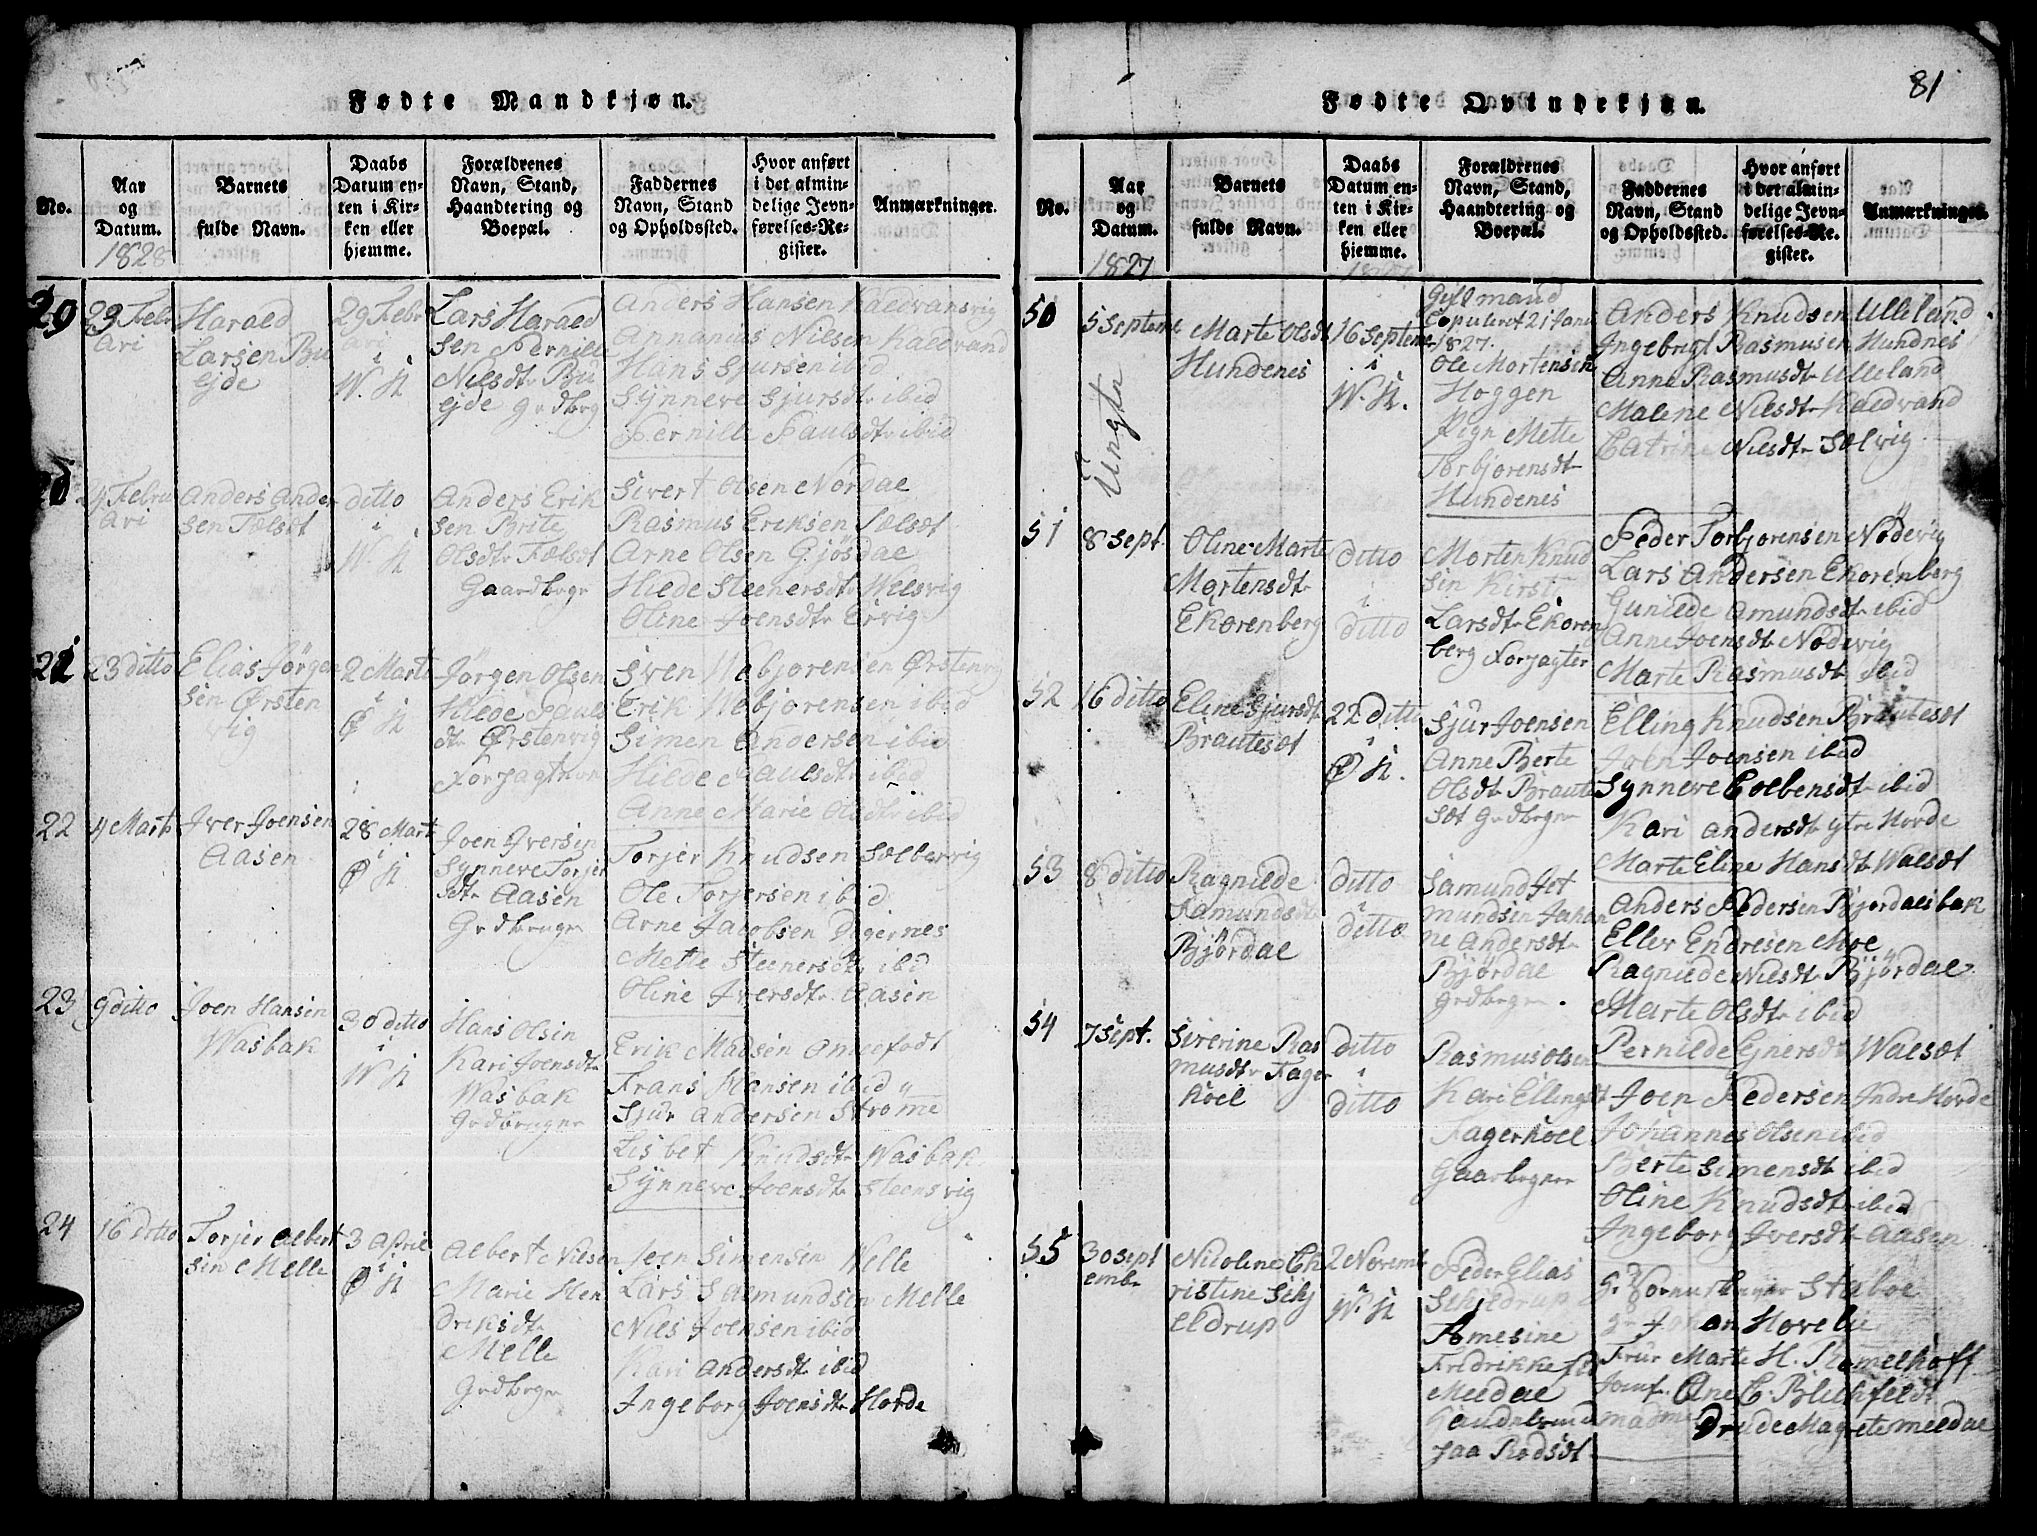 81
Fødte Mandkjøn.
No.
Aar
og
Datum.
1828
Barnets
fulde Navn.
Daabs
Datum en-
ten i Kir-
ken eller
hjemme.
Forældrenes
Navn, Stand,
Haandtering og
Boepæl.
Faddernes
Navn, Stand
og Opholdssted.
Hvor anført
i det almin-
delige Jevn-
førelses-Re-
gister.
Anmærkninger.
29 Febr
Harald
Larsen Bu
ejde
29 Febr
i
W. K
Lars Harald
sen Pernille
Nilsdtr Bu
ejde Grdbrg
Anders Hansen Kaldvansvig
Annanias Nilsen Kaldvand
Hans Sjursen ibid
Synneve Sjursdtr ibid
Pernille Paulsdtr ibid
4 Febru
Anders Ander
sen Fælsæt
ditto
i
W. K
Anders Erik
sen Brite
Olsdtr Fælsæt
Gaardbrgr
Sivert Olsen Nordae
Rasmus Eriksen Fælsæt
Arne Olsen Gjøsdae
Hilde Steenersdtr Welsvig
Oline Joensdtr Eivig
21
23 ditto
Elias Jørgen
sen Ørsten
vig
2 Marti
i
Ø K
Jørgen Olsen
Hilde Pauls
dtr Ørstenvig
Forpagter
Sven Webjørensen Ørstenvig
Erik Webjørensen ibid
Simen Andersen ibid
Hilde Paulsdtr ibid
Anne Marie Olsdtr ibid
22
4 Marti
Iver Joensen
Aasen
28 Mart
i
Ø K
Joen Iversen
Synneve Torjer
sdtr Aasen
Grdbrugr
Torjer Knudsen Sælbervig
Ole Torjersen ibid
Arne Jacobsen Digernes
Mette Steenersdtr ibid
Oline Iversdtr Aasen
23
9 ditto
Joen Hansen
Wasbak
30 ditto
i
W K
Hans Olsen
Kari Joensdtr
Wasbak
Grdbrugr
Erik Madsen Omelfodt
Frans Hansen ibid
Sjur Andersen Strøme
Lisbet Knudsdtr Wasbak
Synneve Joensdtr Steensvig
24
16 ditto
Torjer Albert
sen Melle
3 April
i
Ø K
Albert Nilsen
Marie Hen
driksdtr
Melle
Grdbrgr
Joen Simensen Welle
Lars Salmundsen Melle
Nils Joensen ibid
Kari Andersdtr ibid
Ingeborg Joensdtr Horde
Fødte Qvindekjøn.
No.
Aar
og
Datum.
1827
Barnets
fulde Navn.
Daabs
Datum en-
ten i Kir-
ken eller
hjemme.
1827
Forældrenes
Navn, Stand,
Haandtering og
Boepæl.
Faddernes
Navn, Stand
og Opholdssted.
Hvor anført
i det almin-
delige Jevn-
førelses-Re-
gister.
Anmærkninger.
50
5 Septem
Uægte
Marte Olsdt
Hundenes
16 Septem
i
W. K.
Gift mand
Copuleret 21 Janu
1827.
Ole Mortensen
Hoggen
Pign Mette
Torbjørensdtr
Hundenes
Anders Knudsen Ulleland
Ingebrigt Rasmusen Hundnes
Anne Rasmusdtr Ulleland
Malene Nilsdtr Kaldvand
Catrine Nilsdtr Solvig
51
8 Sept.
Oline Marte
Mortensdtr
Ekorenberg
ditto
i
ditto
Morten Knud
sen Kirsti
Larsdtr Ekoren
berg Forpagter
Peder Torbjørensen Nødevig
Lars Andersen Ekorenberg
Gunilde Amundsdtr ibid
Anne Joensdtr Nødevig
Marte Rasmusdtr ibid
52
16 ditto
Eline Sjursdt
Brautesæt
22 Ditto
i
Ø K.
Sjur Joensen
Anne Berte
Olsdt Braute
sæt Grdbrgr
Elling Knudsen Brautesæt
Joen Joensen ibid
Synneve Colbensdtr ibid
Kari Andersdtr ytre Horde
Marte Eline Hansdtr Walsæt
53
8 ditto
Ragnilde
Samundsdt
Bjørdae
ditto
i
ditto
Samund Jet
mundsen Johan
ne Andersdtr
Bjørdae
Grdbrgr.
Anders Pedersen Bjordalsbak
Eller Endresen Moe
Ragnilde Nilsdtr Bjørdae
Marte Olsdtr ibid
Pernilde Ejnersdtr Walsæt
54
7 Sept.
Siverine Ras
musdtr Fager
hoel
ditto
i
ditto
Rasmus Olsen
Kari Ellingsdt
Fagerhoel
Gaarbrgr
Joen Pedersen Indre Horde
Johannes Olsen ibid
Berte Simensdtr ibid
Oline Knudsdtr ibid
Ingeborg Iversdtr Aasen
55
30 Sept
embr
Nicoline Ch
ristine Schj
eldrup
2 Novemb
i
W. K
Peder Elias
Schjeldrup
Amesine
Fredrikke
Meldae
Handelsmand
paa Rødsæt
Hr Staboe
Hr Johan Hovelie
Frur Marte H. Romelhoff
Jomf. Ane C. Blichfeldt
Madme Drude Magrete Meldae